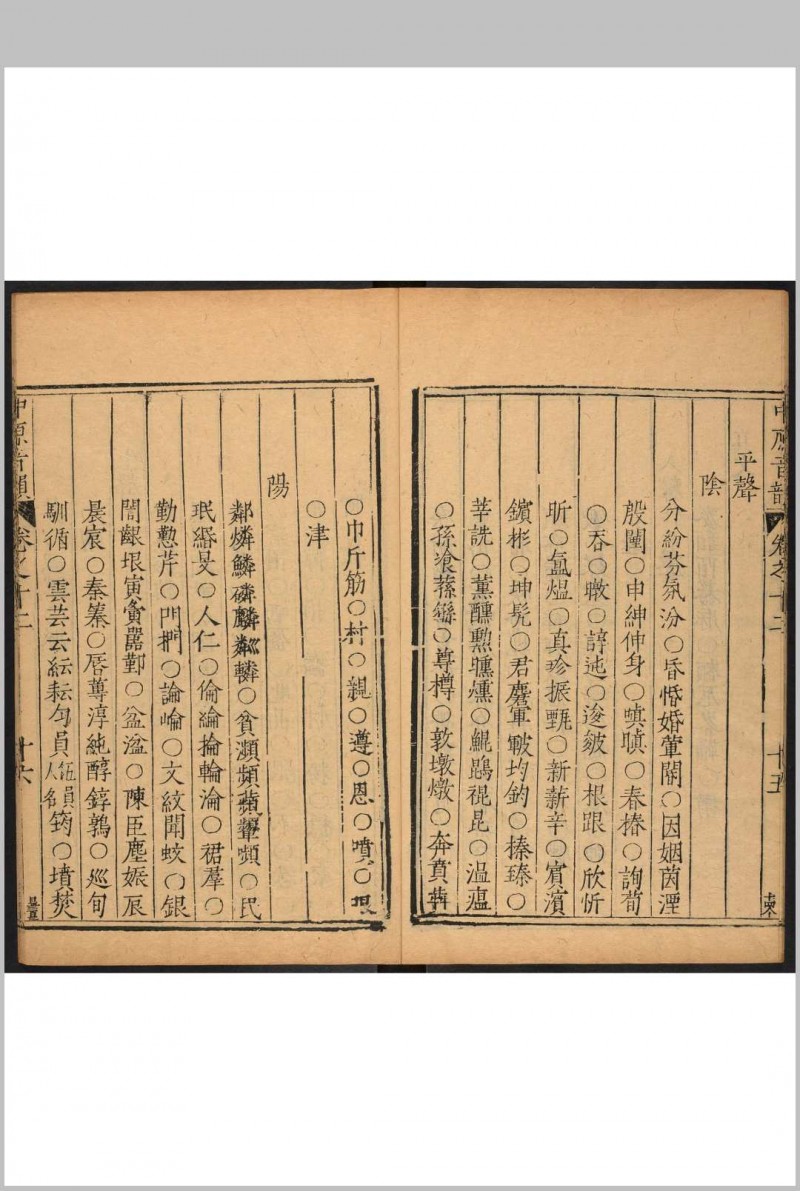 中原音韻 卷之十二 十五
平聲
陰
分紛芬氛汾○昏惛婚葷閽○因姻茵湮
殷闉○申紳伸身○嗔瞋○春椿○詢荀
○吞○暾○諄迍○逡皴○根跟○欣忻
昕○氳熅○真珍振甄○新薪辛○賓濱
鑌彬○坤髡○君麏軍皸均鈞○榛臻○
莘詵○薰醺勳曛燻○鯤鵾裩昆○温瘟
○孫飧蓀○尊樽○敦墩燉○奔賁犇
○巾斤筋○村○親○遵○恩○噴○
○津
陽
鄰燐鱗磷麟粼轔○貧瀕頻蘋顰嚬○民
珉緡旻○人仁○倫綸掄輪淪○裙羣○
勤懃芹○門捫○論崘○文紋聞蚊○銀
誾齦垠寅夤嚚鄞○盆湓○陳臣塵娠辰
晨宸○秦蓁○唇蓴淳純醇錞鶉○巡旬
馴循○雲芸云紜耘勻員伍員人名筠○墳焚
中原音韻 卷之十二 十六